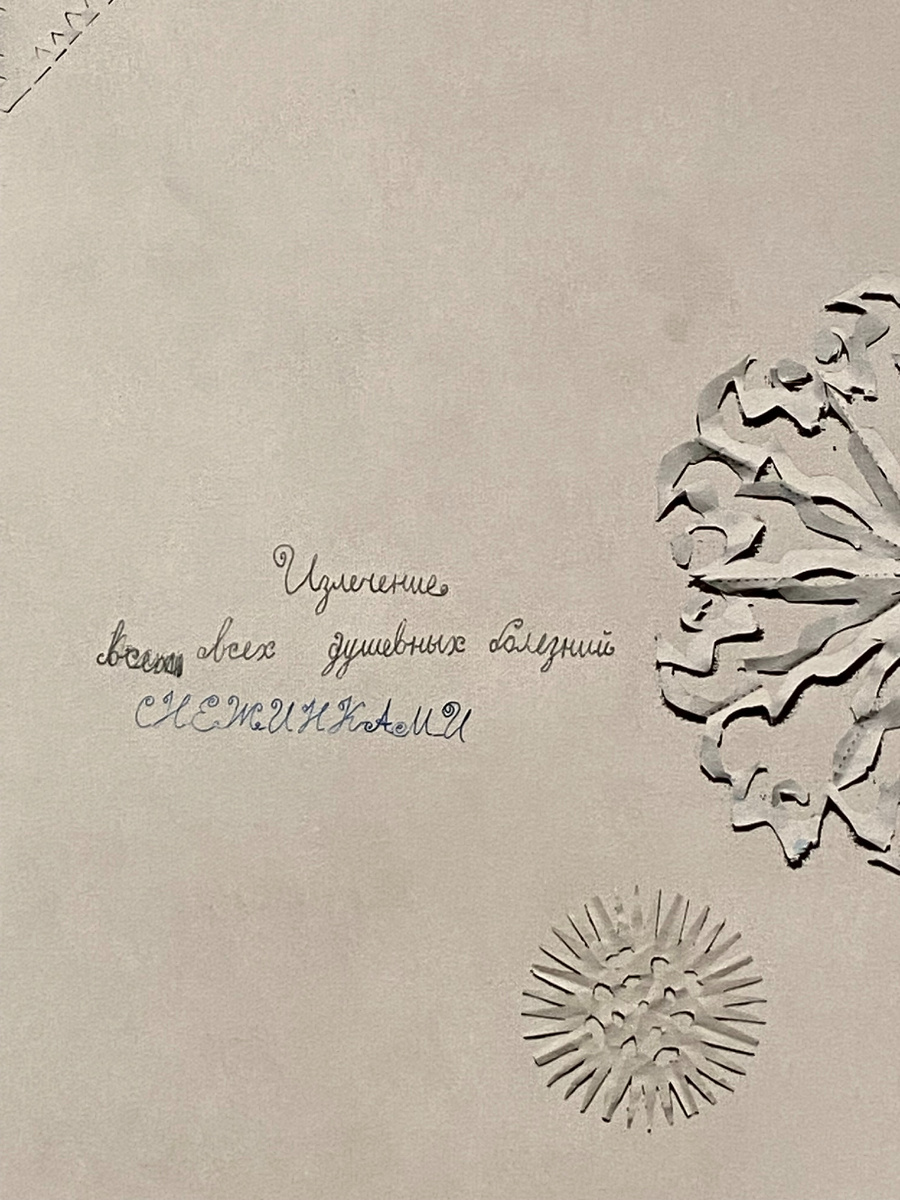 Излечение
всех душевных болезний
СНЕЖИНКАМИ